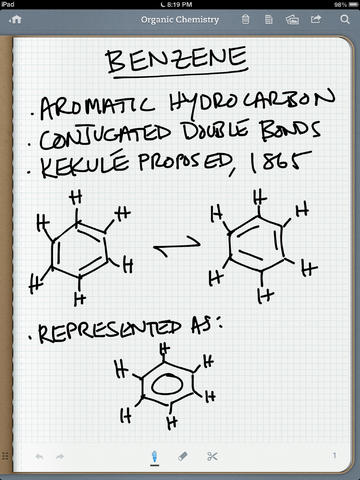 iPad 8:19 PM 98%
Organic Chemistry
BENZENE
· AROMATIC HYDROCARBON
· CONJUGATED DOUBLE BONDS
· KEKULÉ PROPOSED, 1865
H H H H H H
H H H H H H
· REPRESENTED AS:
H H H H H H
1